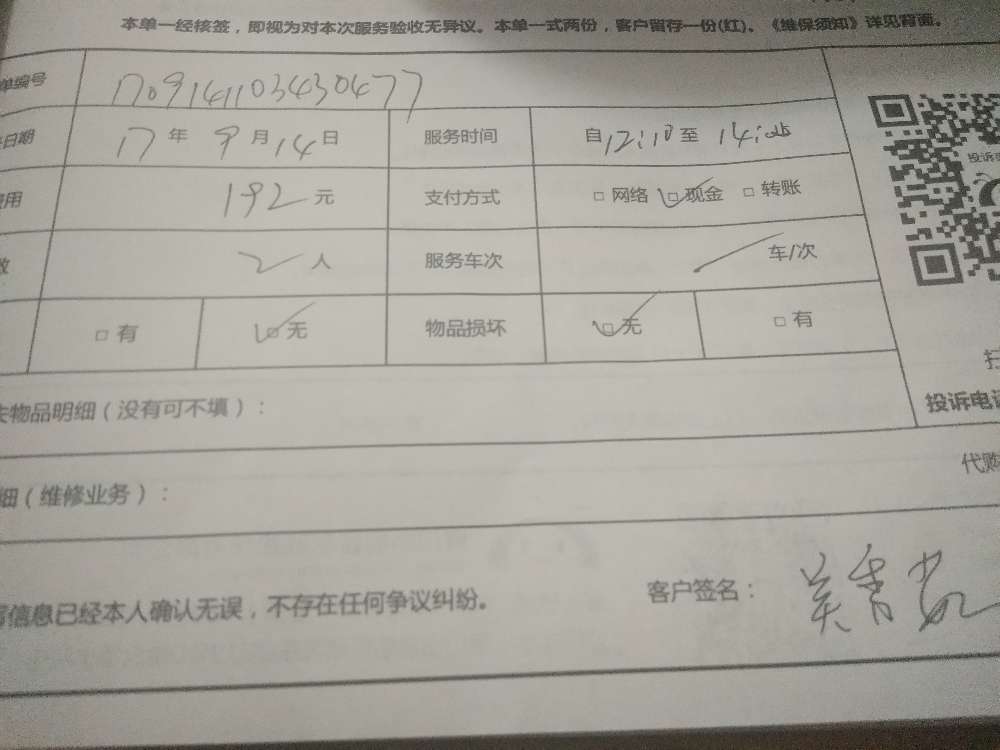 本单一经核签，即视为对本次服务验收无异议。本单一式两份，客户留存一份(红)。《维保须知》详见背面。
单编号 1709141103430477
日期 17年 9月 14日 服务时间 自12:10至 14:
用 192元 支付方式 □网络 ☑现金 □转账
数 2人 服务车次 车/次
□有 ☑无 物品损坏 ☑无 □有
投诉
扫
失物品明细（没有可不填）：
投诉电话
代购
细（维修业务）：
写信息已经本人确认无误，不存在任何争议纠纷。
客户签名：